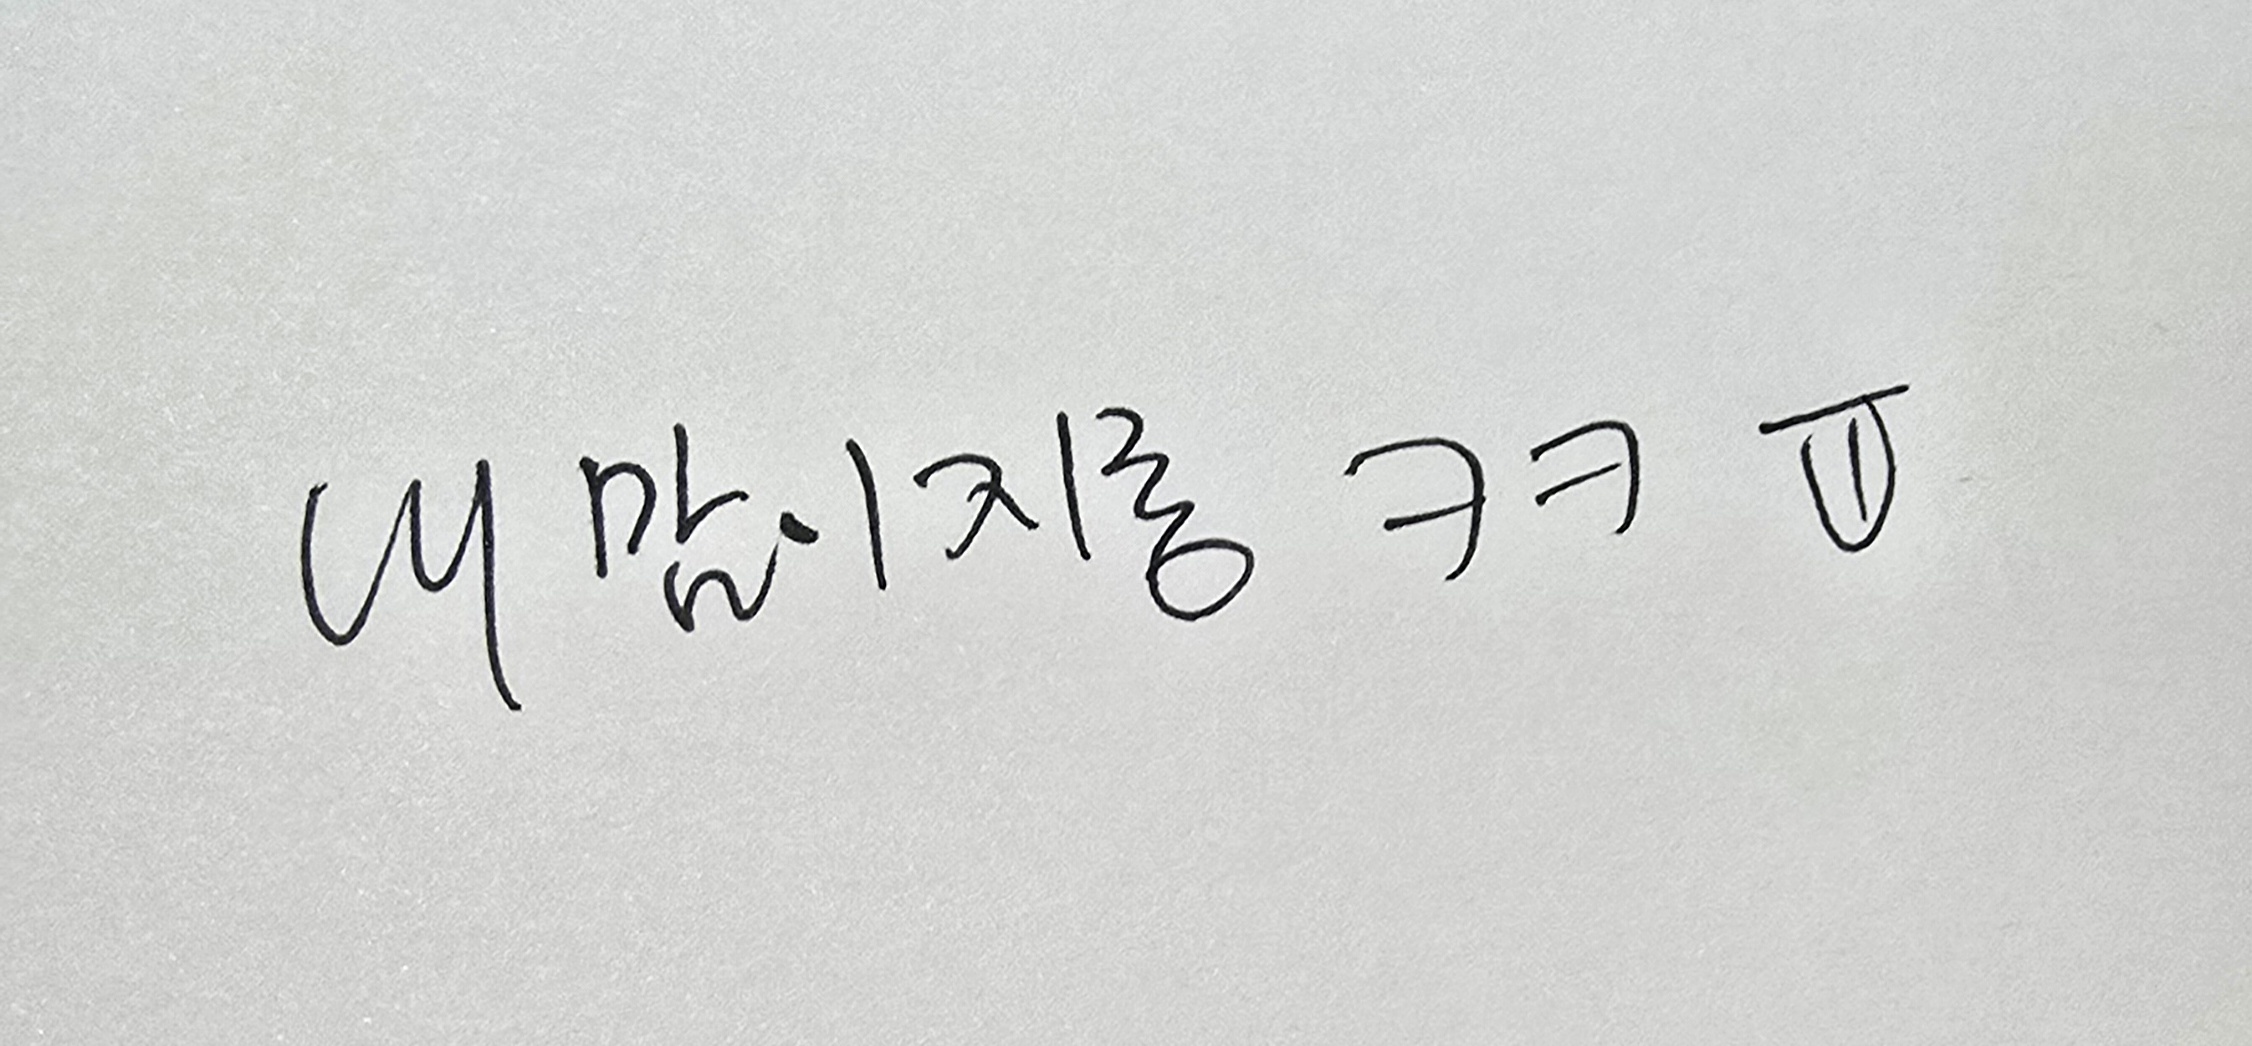 내 맘이지롱 ㅋㅋ